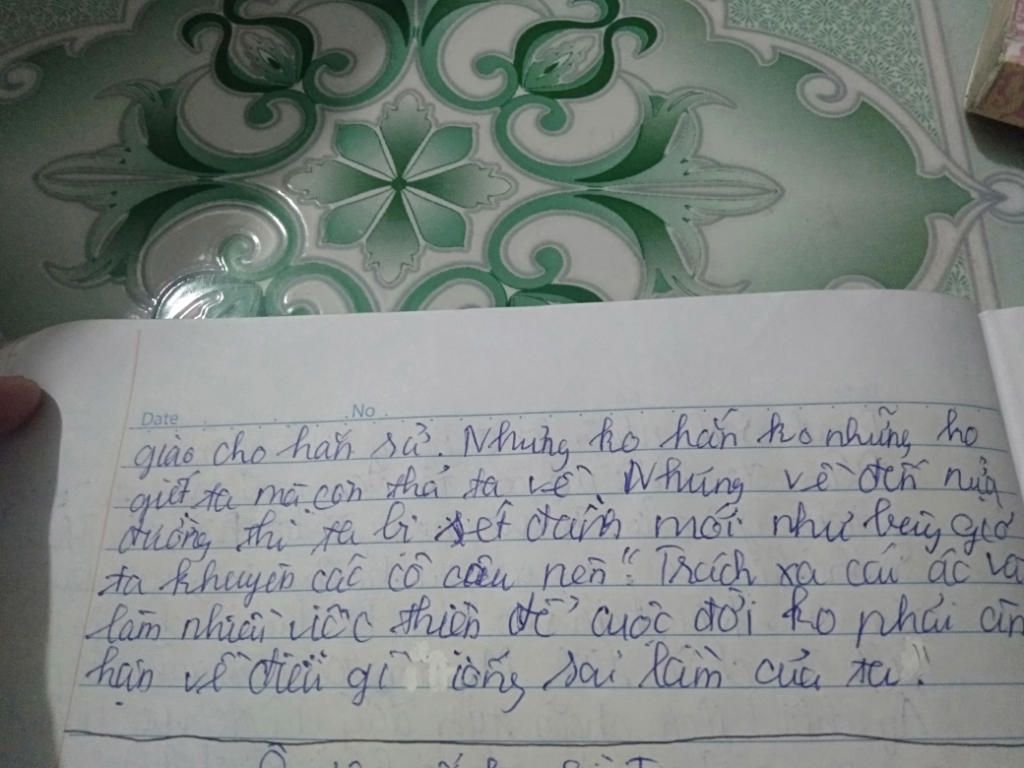 Date No
giao cho hắn sử. Nhưng ko hắn ko những ko
giết ta mà còn thả ta về Nhưng về đến nửa
đường thì ta bị sét đánh mới như bây giờ
ta khuyên các cô cậu nên "Trách xa cái ác và
làm nhiều việc thiện để cuộc đời ko phải ân
hận về điều gì iống sai lầm của ta".